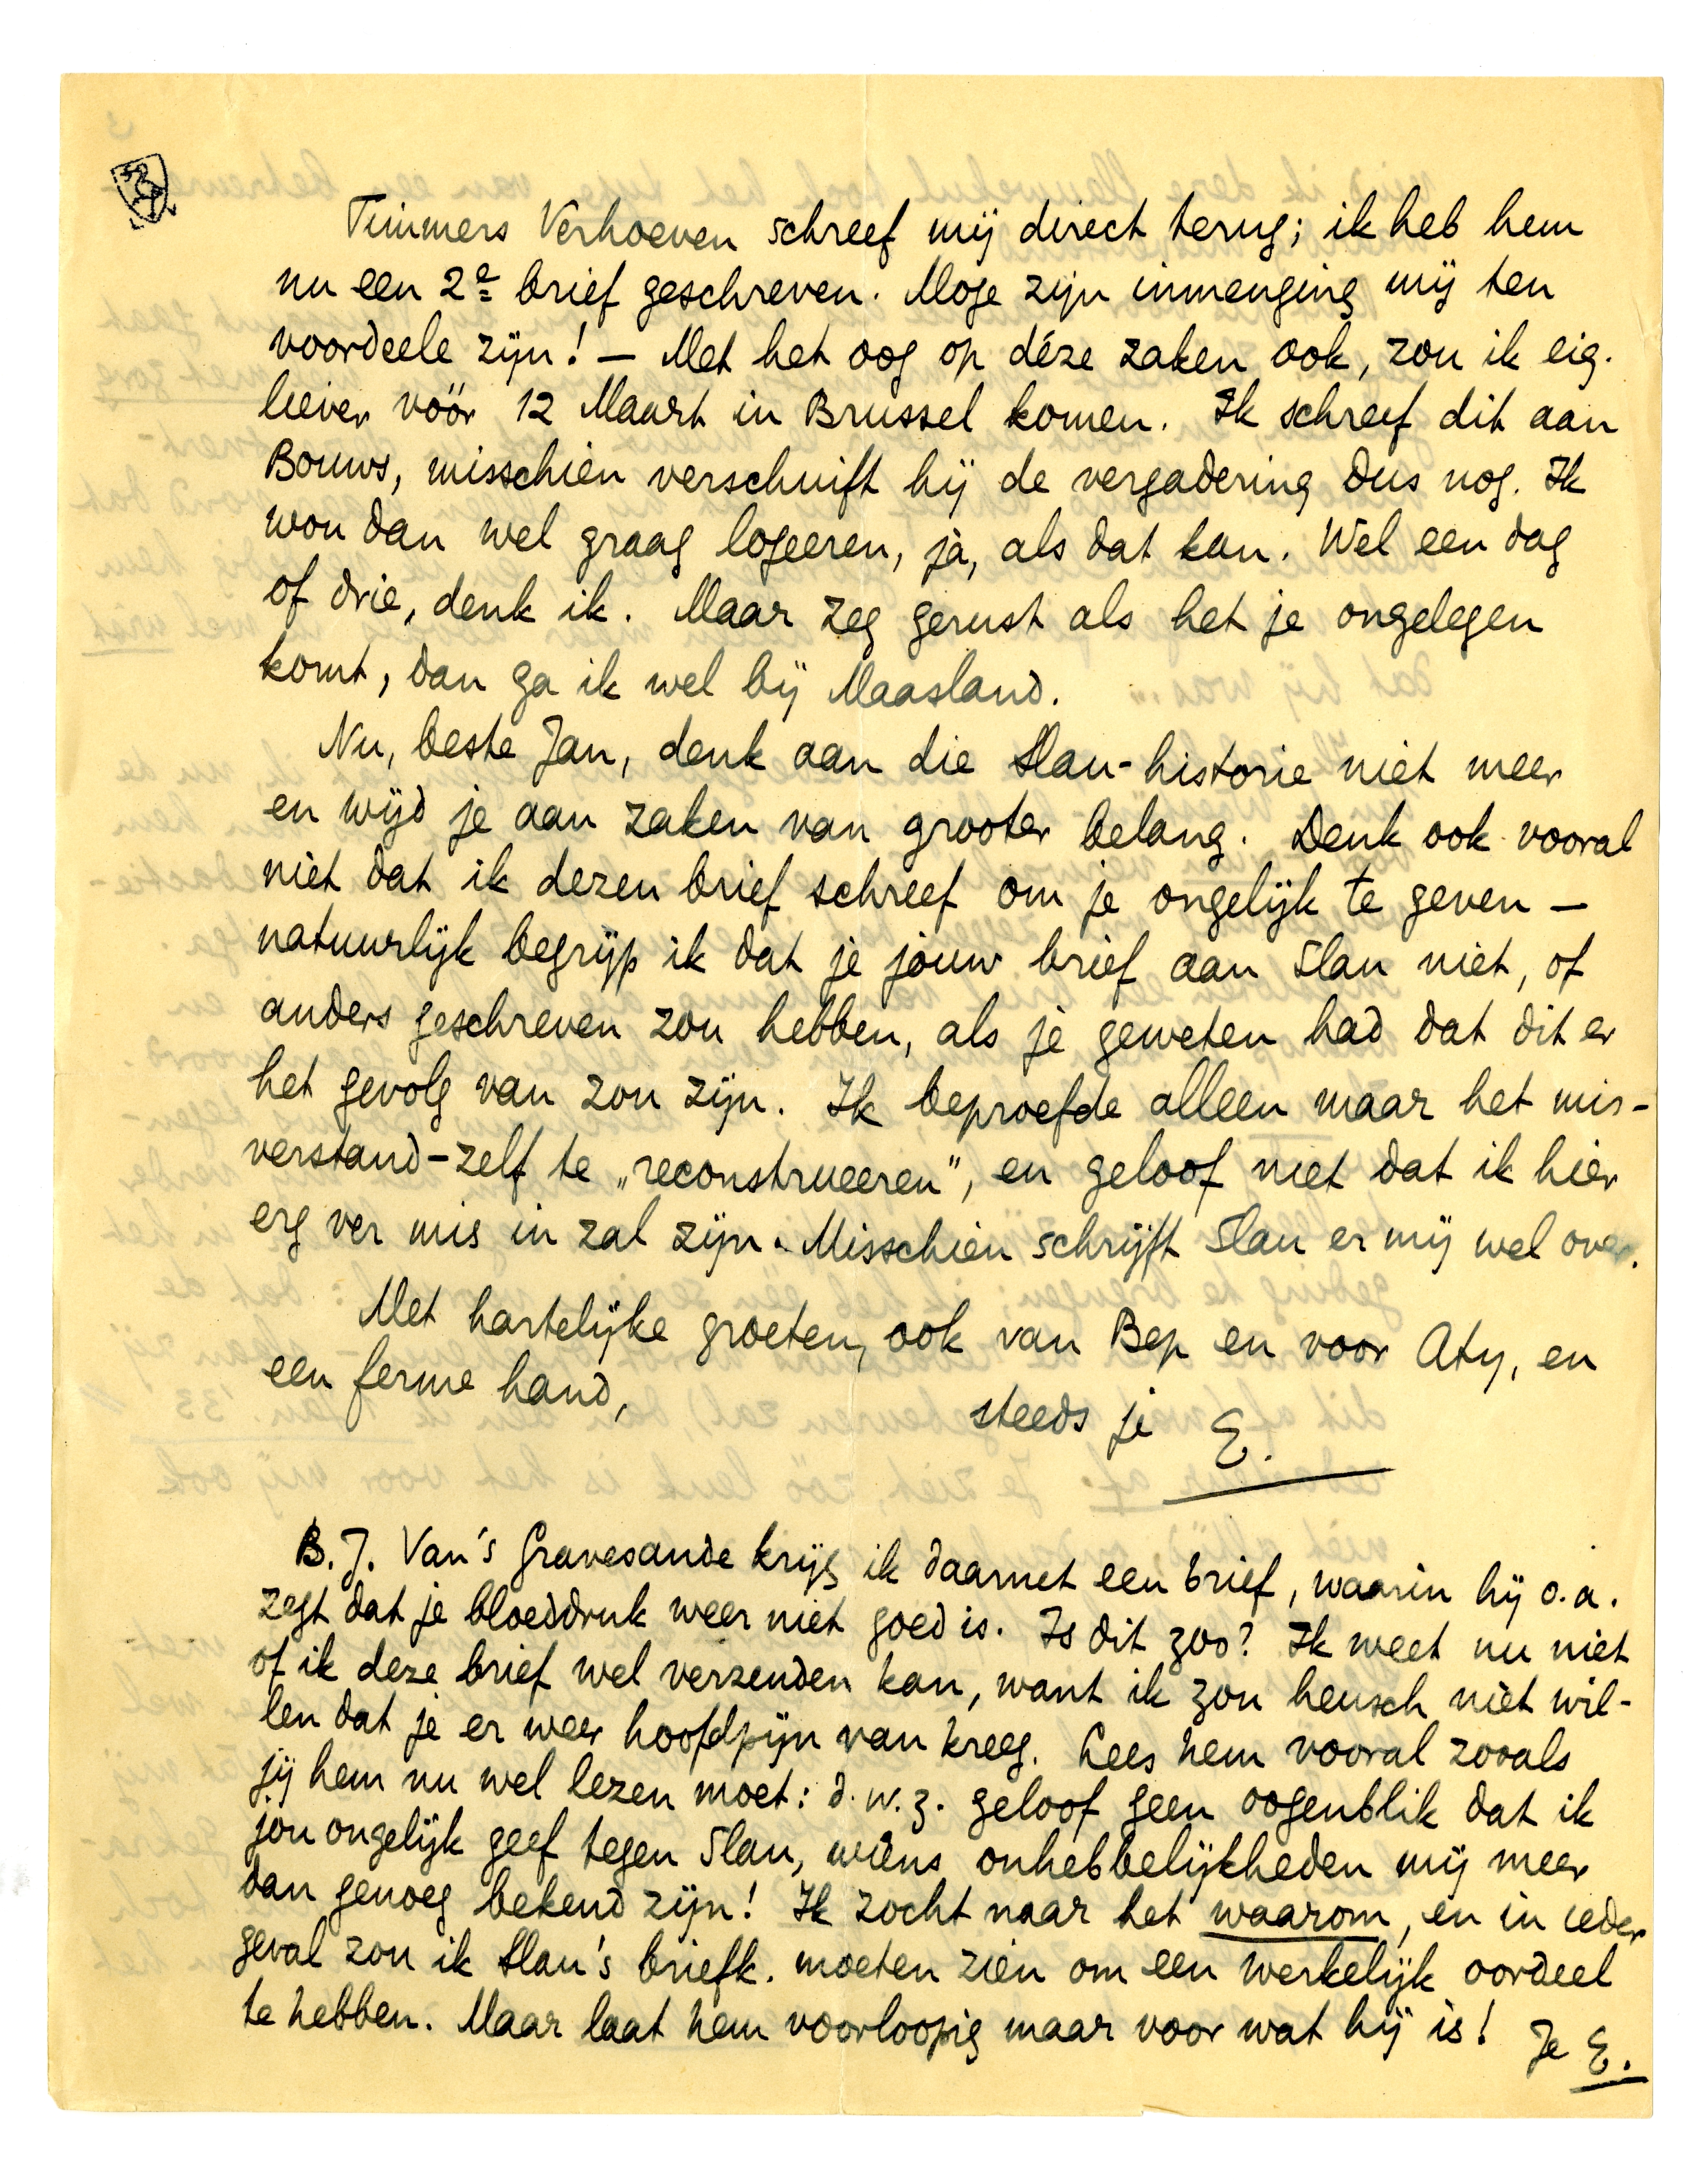 Timmers Verhoeven schreef mij direct terug; ik heb hem
nu een 2e brief geschreven. Moge zijn inmenging mij ten
voordeele zijn! — Met het oog op déze zaken ook, zou ik eig.
liever vóór 12 Maart in Brussel komen. Ik schreef dit aan
Bouws, misschien verschuift hij de vergadering dus nog. Ik
wou dan wel graag logeeren, ja, als dat kan. Wel een dag
of drie, denk ik. Maar zeg gerust als het je ongelegen
komt, dan ga ik wel bij Maasland.
Nu, beste Jan, denk aan die Slau-historie niet meer
en wijd je aan zaken van grooter belang. Denk ook vooral
niet dat ik dezen brief schreef om je ongelijk te geven —
natuurlijk begrijp ik dat je jouw brief aan Slau niet, of
anders geschreven zou hebben, als je geweten had dat dit er
het gevolg van zou zijn. Ik beproefde alleen maar het mis-
verstand-zelf te „reconstrueeren”, en geloof niet dat ik hier
erg ver mis in zal zijn. Misschien schrijft Slau er mij wel over.
Met hartelijke groeten, ook van Bep en voor Aty, en
een ferme hand,
steeds je E.
B.J. Van 's Gravesande krijg ik daarnet een brief, waarin hij o.a.
zegt dat je bloeddruk weer niet goed is. Is dit zoo? Ik weet nu niet
of ik deze brief wel verzenden kan, want ik zou heusch niet wil-
len dat je er weer hoofdpijn van kreeg. Lees hem vooral zooals
jij hem nu wel lezen moet: d.w.z. geloof geen oogenblik dat ik
jou ongelijk geef tegen Slau, wiens onhebbelijkheden mij meer
dan genoeg bekend zijn! Ik zocht naar het waarom, en in ieder
geval zou ik Slau's briefk. moeten zien om een werkelijk oordeel
te hebben. Maar laat hem voorloopig maar voor wat hij is! Je E.